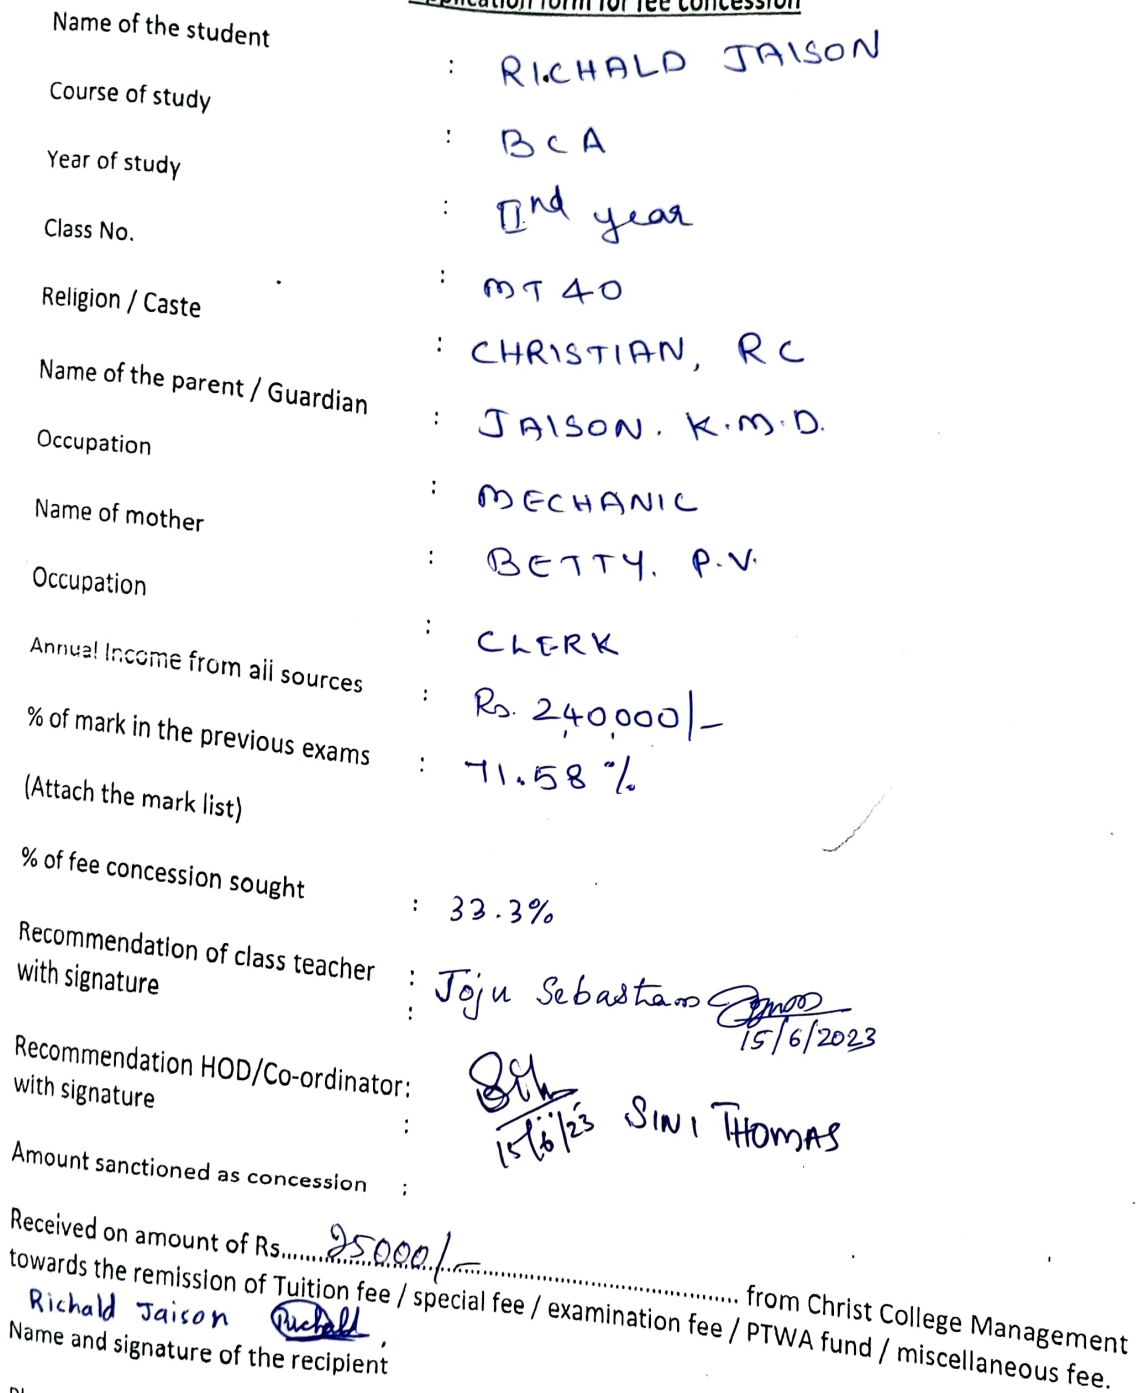 Application form for fee concession
Name of the student : RICHALD JAISON
Course of study : BCA
Year of study : IInd year
Class No. : MT 40
Religion / Caste : CHRISTIAN, RC
Name of the parent / Guardian : JAISON. K.M.D.
Occupation : MECHANIC
Name of mother : BETTY. P.V.
Occupation : CLERK
Annual Income from all sources : Rs. 2,40,000/-
% of mark in the previous exams : 71.58 %
(Attach the mark list)
% of fee concession sought : 33.3%
Recommendation of class teacher : Joju Sebastian
with signature : 15/6/2023
Recommendation HOD/Co-ordinator:
with signature : 15/6/23 SINI THOMAS
Amount sanctioned as concession :
Received on amount of Rs......25000/-.................... from Christ College Management
towards the remission of Tuition fee / special fee / examination fee / PTWA fund / miscellaneous fee.
Richald Jaison Richald
Name and signature of the recipient